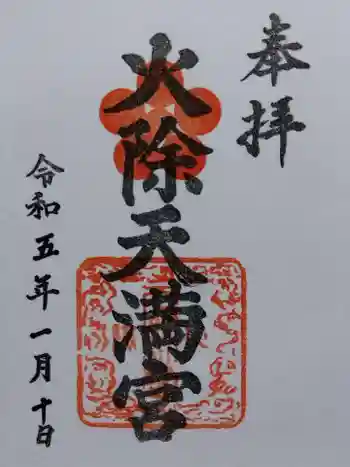 奉拝
火除天満宮
令和五年一月十日